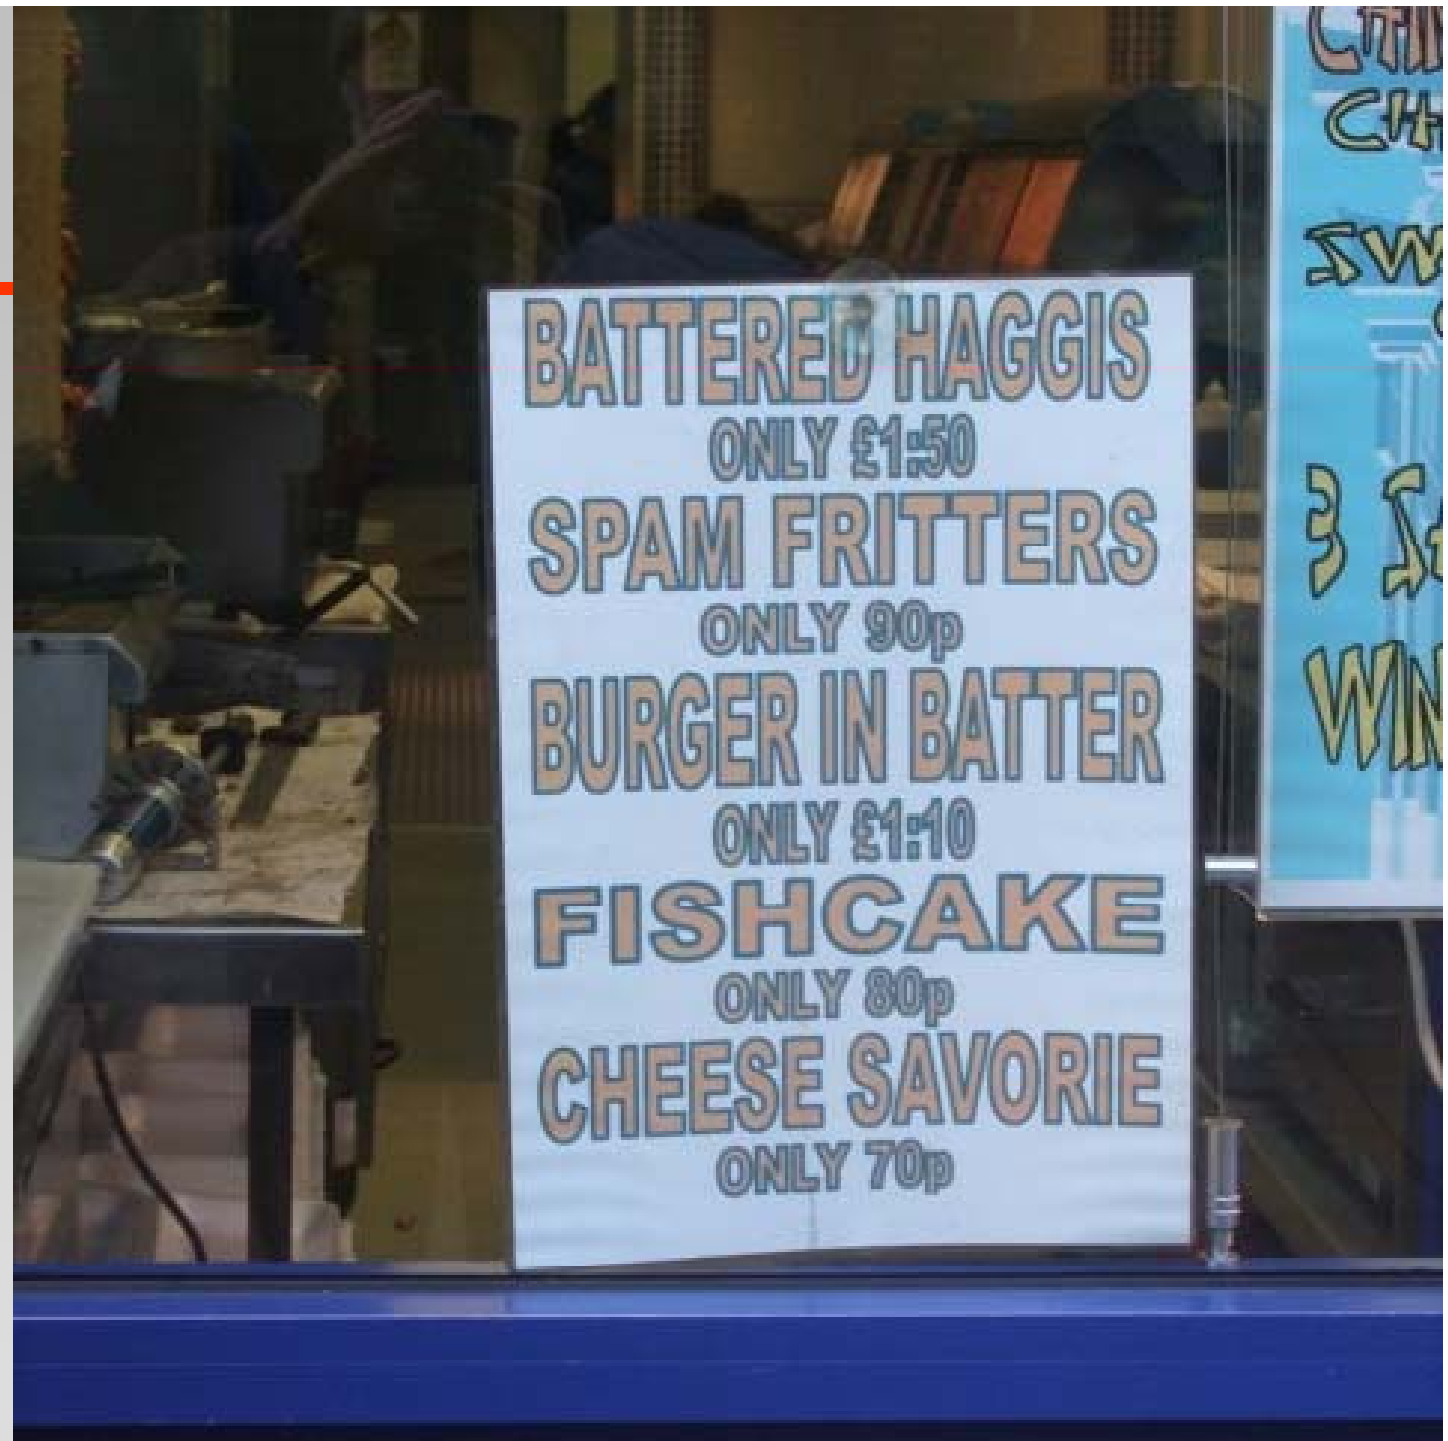 BATTERED HAGGIS
ONLY £1:50
SPAM FRITTERS
ONLY 90p
BURGER IN BATTER
ONLY £1:10
FISHCAKE
ONLY 80p
CHEESE SAVORIE
ONLY 70p
3